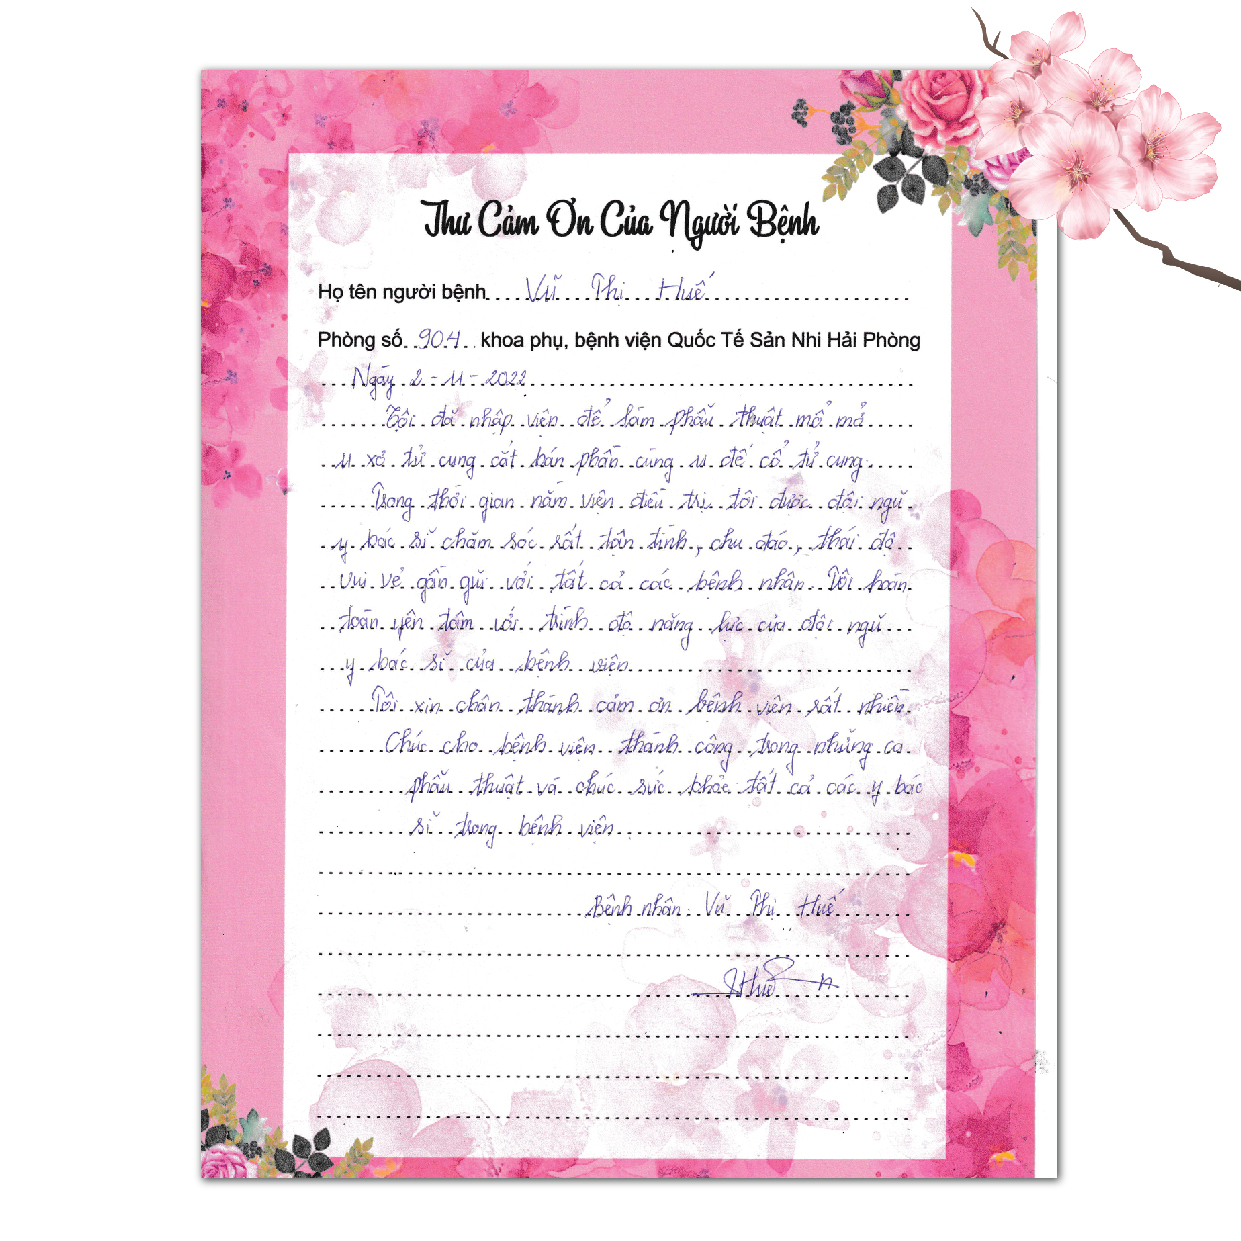 Thư Cảm Ơn Của Người Bệnh
Họ tên người bệnh Vũ Thị Huế
Phòng số 904 khoa phụ, bệnh viện Quốc Tế Sản Nhi Hải Phòng
Ngày 2-11-2022
Tôi đã nhập viện để làm phẫu thuật mổ mở
u xơ tử cung cắt bán phần cùng u đế cổ tử cung
Trong thời gian nằm viện điều trị tôi được đội ngũ
y bác sĩ chăm sóc rất tận tình, chu đáo, thái độ
vui vẻ gần gũi với tất cả các bệnh nhân Tôi hoàn
toàn yên tâm với trình độ năng lực của đội ngũ
y bác sĩ của bệnh viện
Tôi xin chân thành cảm ơn bệnh viện rất nhiều
Chúc cho bệnh viện thành công trong những ca
phẫu thuật và chúc sức khỏe tất cả các y bác
sĩ trong bệnh viện
Bệnh nhân Vũ Thị Huế
Huế